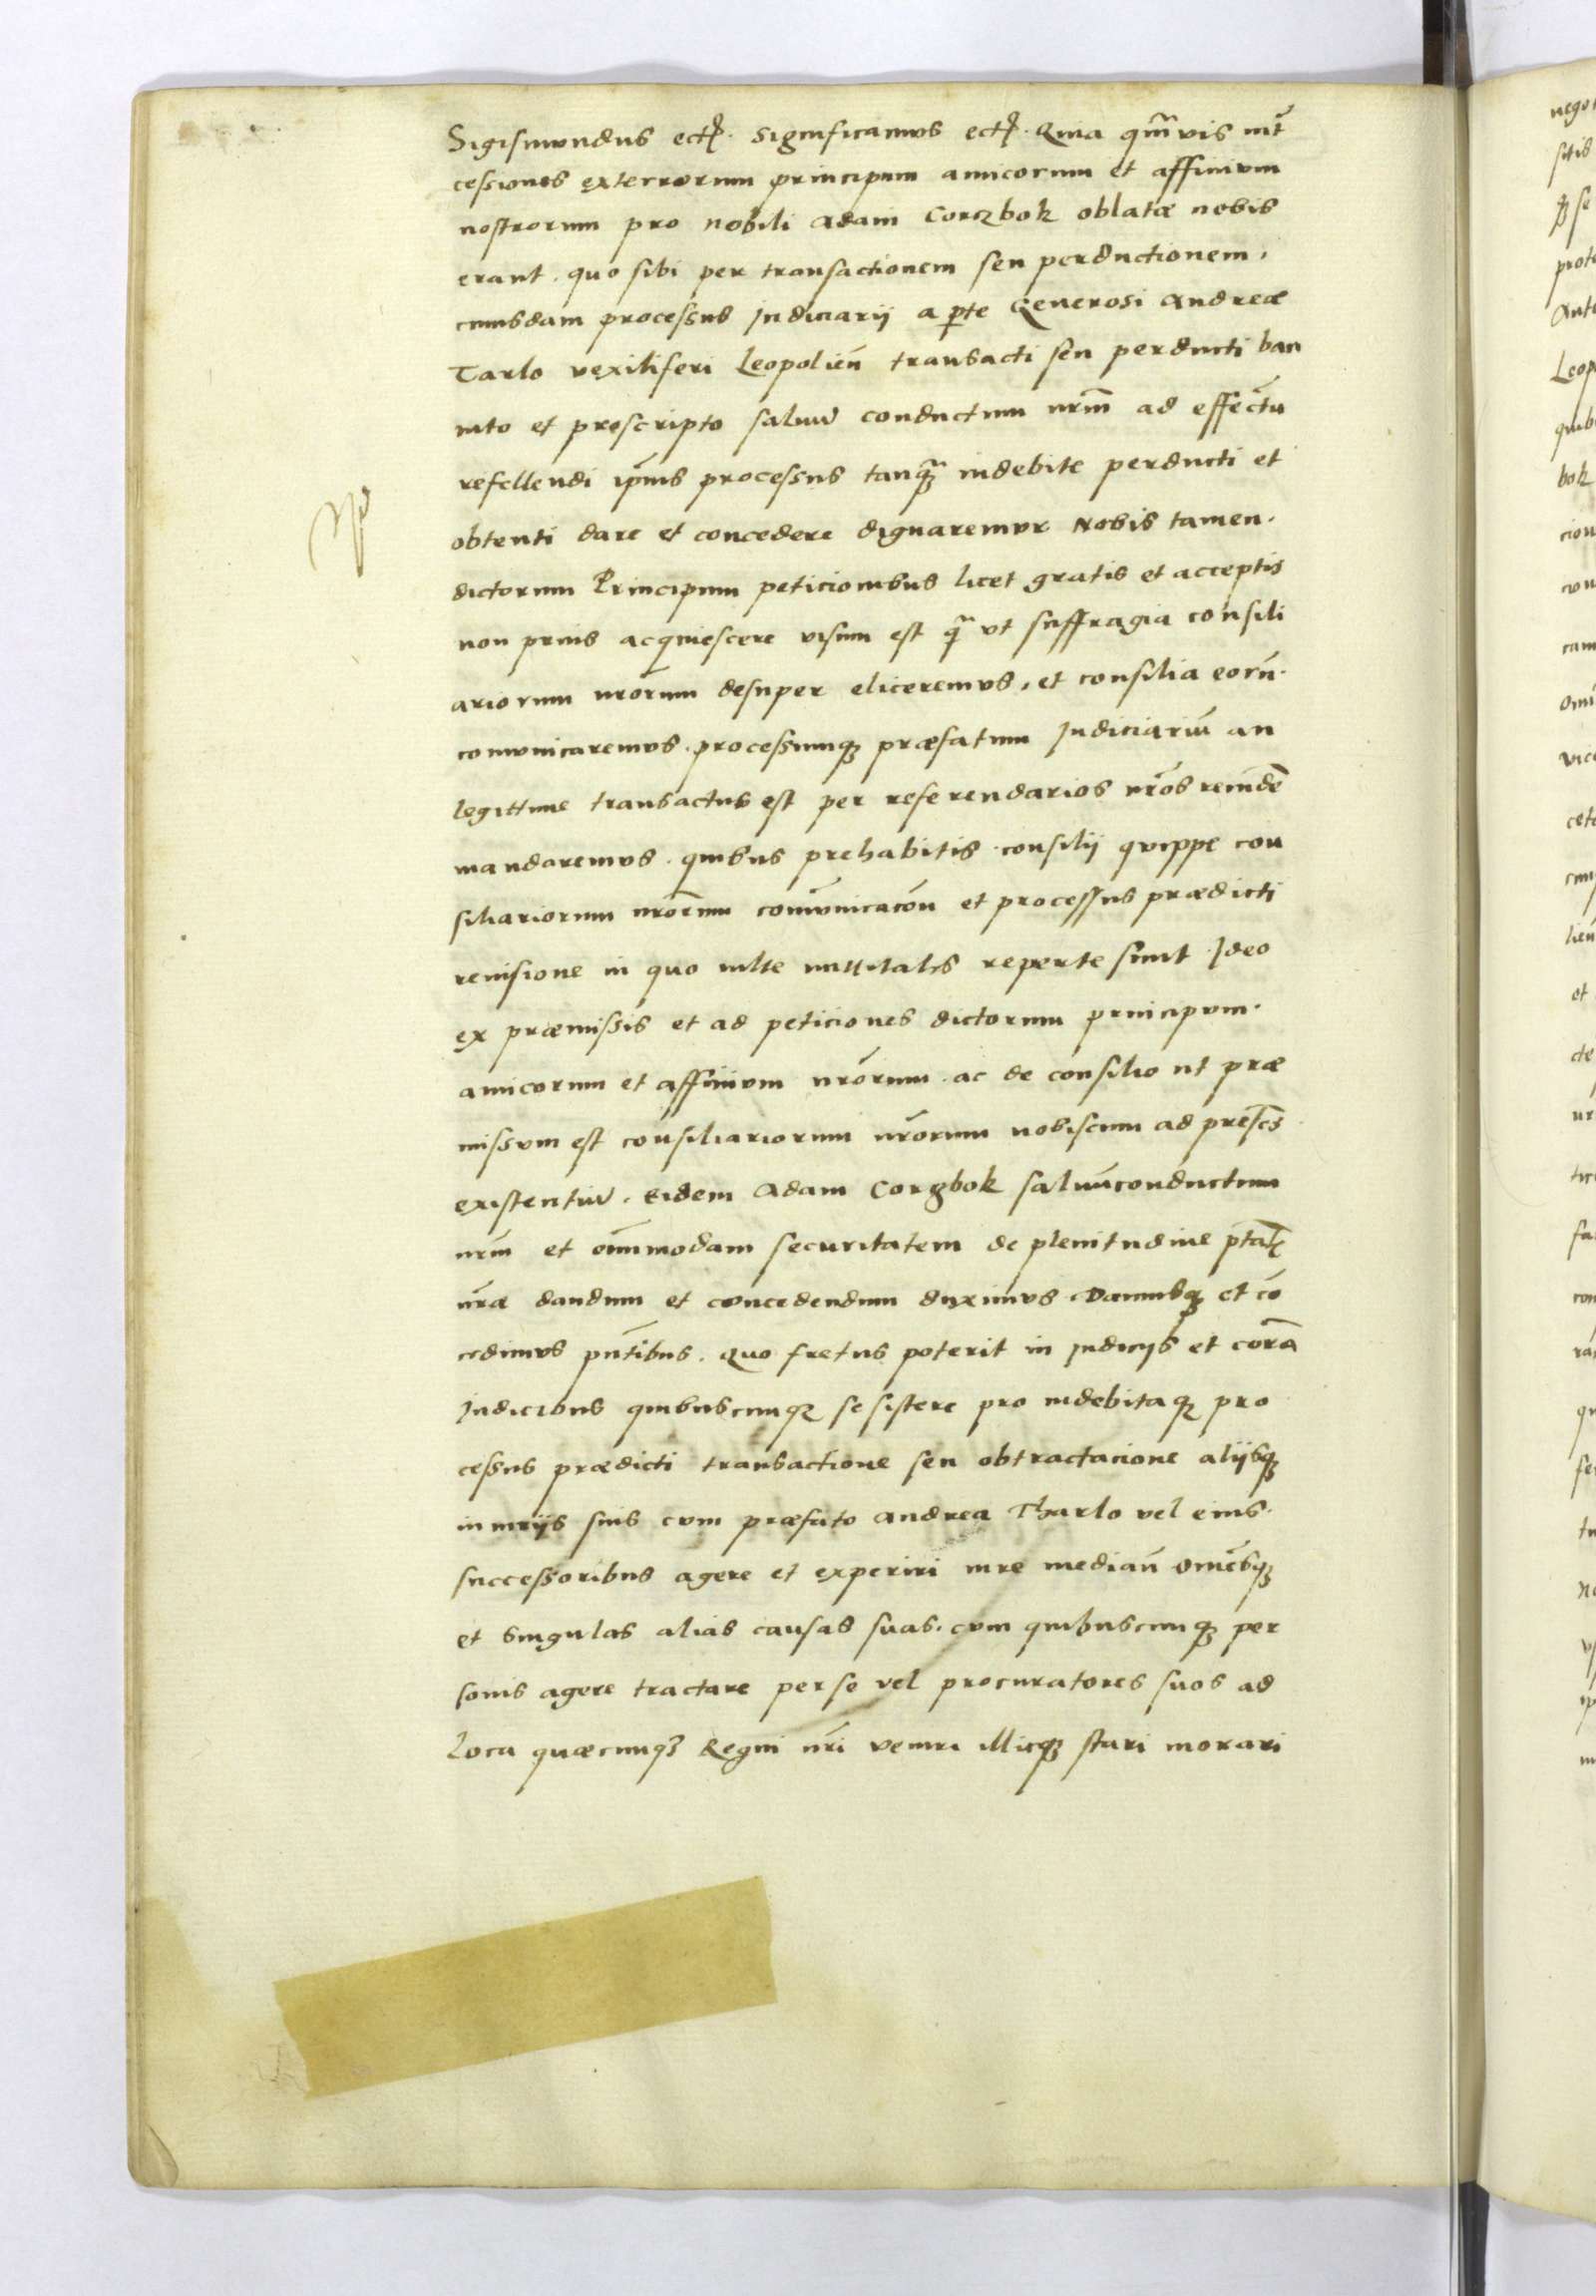 Sigismundus ectꝭ. Significamus ectꝭ. Quia qm̃uis int̃
cessiones exterrorum principum amicorum et affinium
nostrorum pro nobili Adam Corczbok oblatæ nobis
erant. quo sibi per transactionem seu perductionem.
cuiusdam processus Judiciarij a pte Generosi Andreæ
Tarlo vexiliferi Leopolieñ transacti seu perducti ban
nito et proscripto saluũ conductum nrm̃ ad effectũ
refellendi ip̃ius processus tanq̃ indebite perducti et
obtenti dare et concedere dignaremur Nobis tamen.
dictorum Principum peticionibus licet gratis et acceptis
non prius acquiescere visum est q̃ vt suffragia consili
ariorum nrorum desuper eliceremus, et consilia eorũ.
comunicaremus. processumqꝫ præfatum Judiciariũ an
legittime transactus est per referendarios nros̃ reuide͂
mandaremus. quibus prehabitis. consilij quippe con
siliariorum nrorum comũnicacõn et processus prædicti
reuisione in quo nulle reperte sunt Ideo
ex præmissis et ad peticiones dictorum principum.
amicorum et affinium nrõrum. ac de consilio ut præ
missum est consiliariorum nrõrum nobiscum ad
existentiũ. Eidem Adam Corgbok saluũconductum
nrm̃ et om̃imodam securitatem de plenitudine ptat̃ꝭ
nr̃æ dandum et concedendum duximus Damusqꝫ et cõ
cedimus pñtibus. Quo fretus poterit in Judicijs et corã
Judicibus quibuscumqꝫ se sistere pro indebitaqꝫ pro
cessus prædicti transactione seu obtractacione alijsqꝫ
iniurijs suis cum præfato Andrea Tharlo vel eius.
successoribus agere et experiri iure mediañ Omẽsqꝫ
et singulas alias causas suas. cum quibuscumqꝫ per
sonis agere tractare per se vel procuratores suos ad
Loca quæcumqꝫ Regni nr̃i venire illicqꝫ stari morari